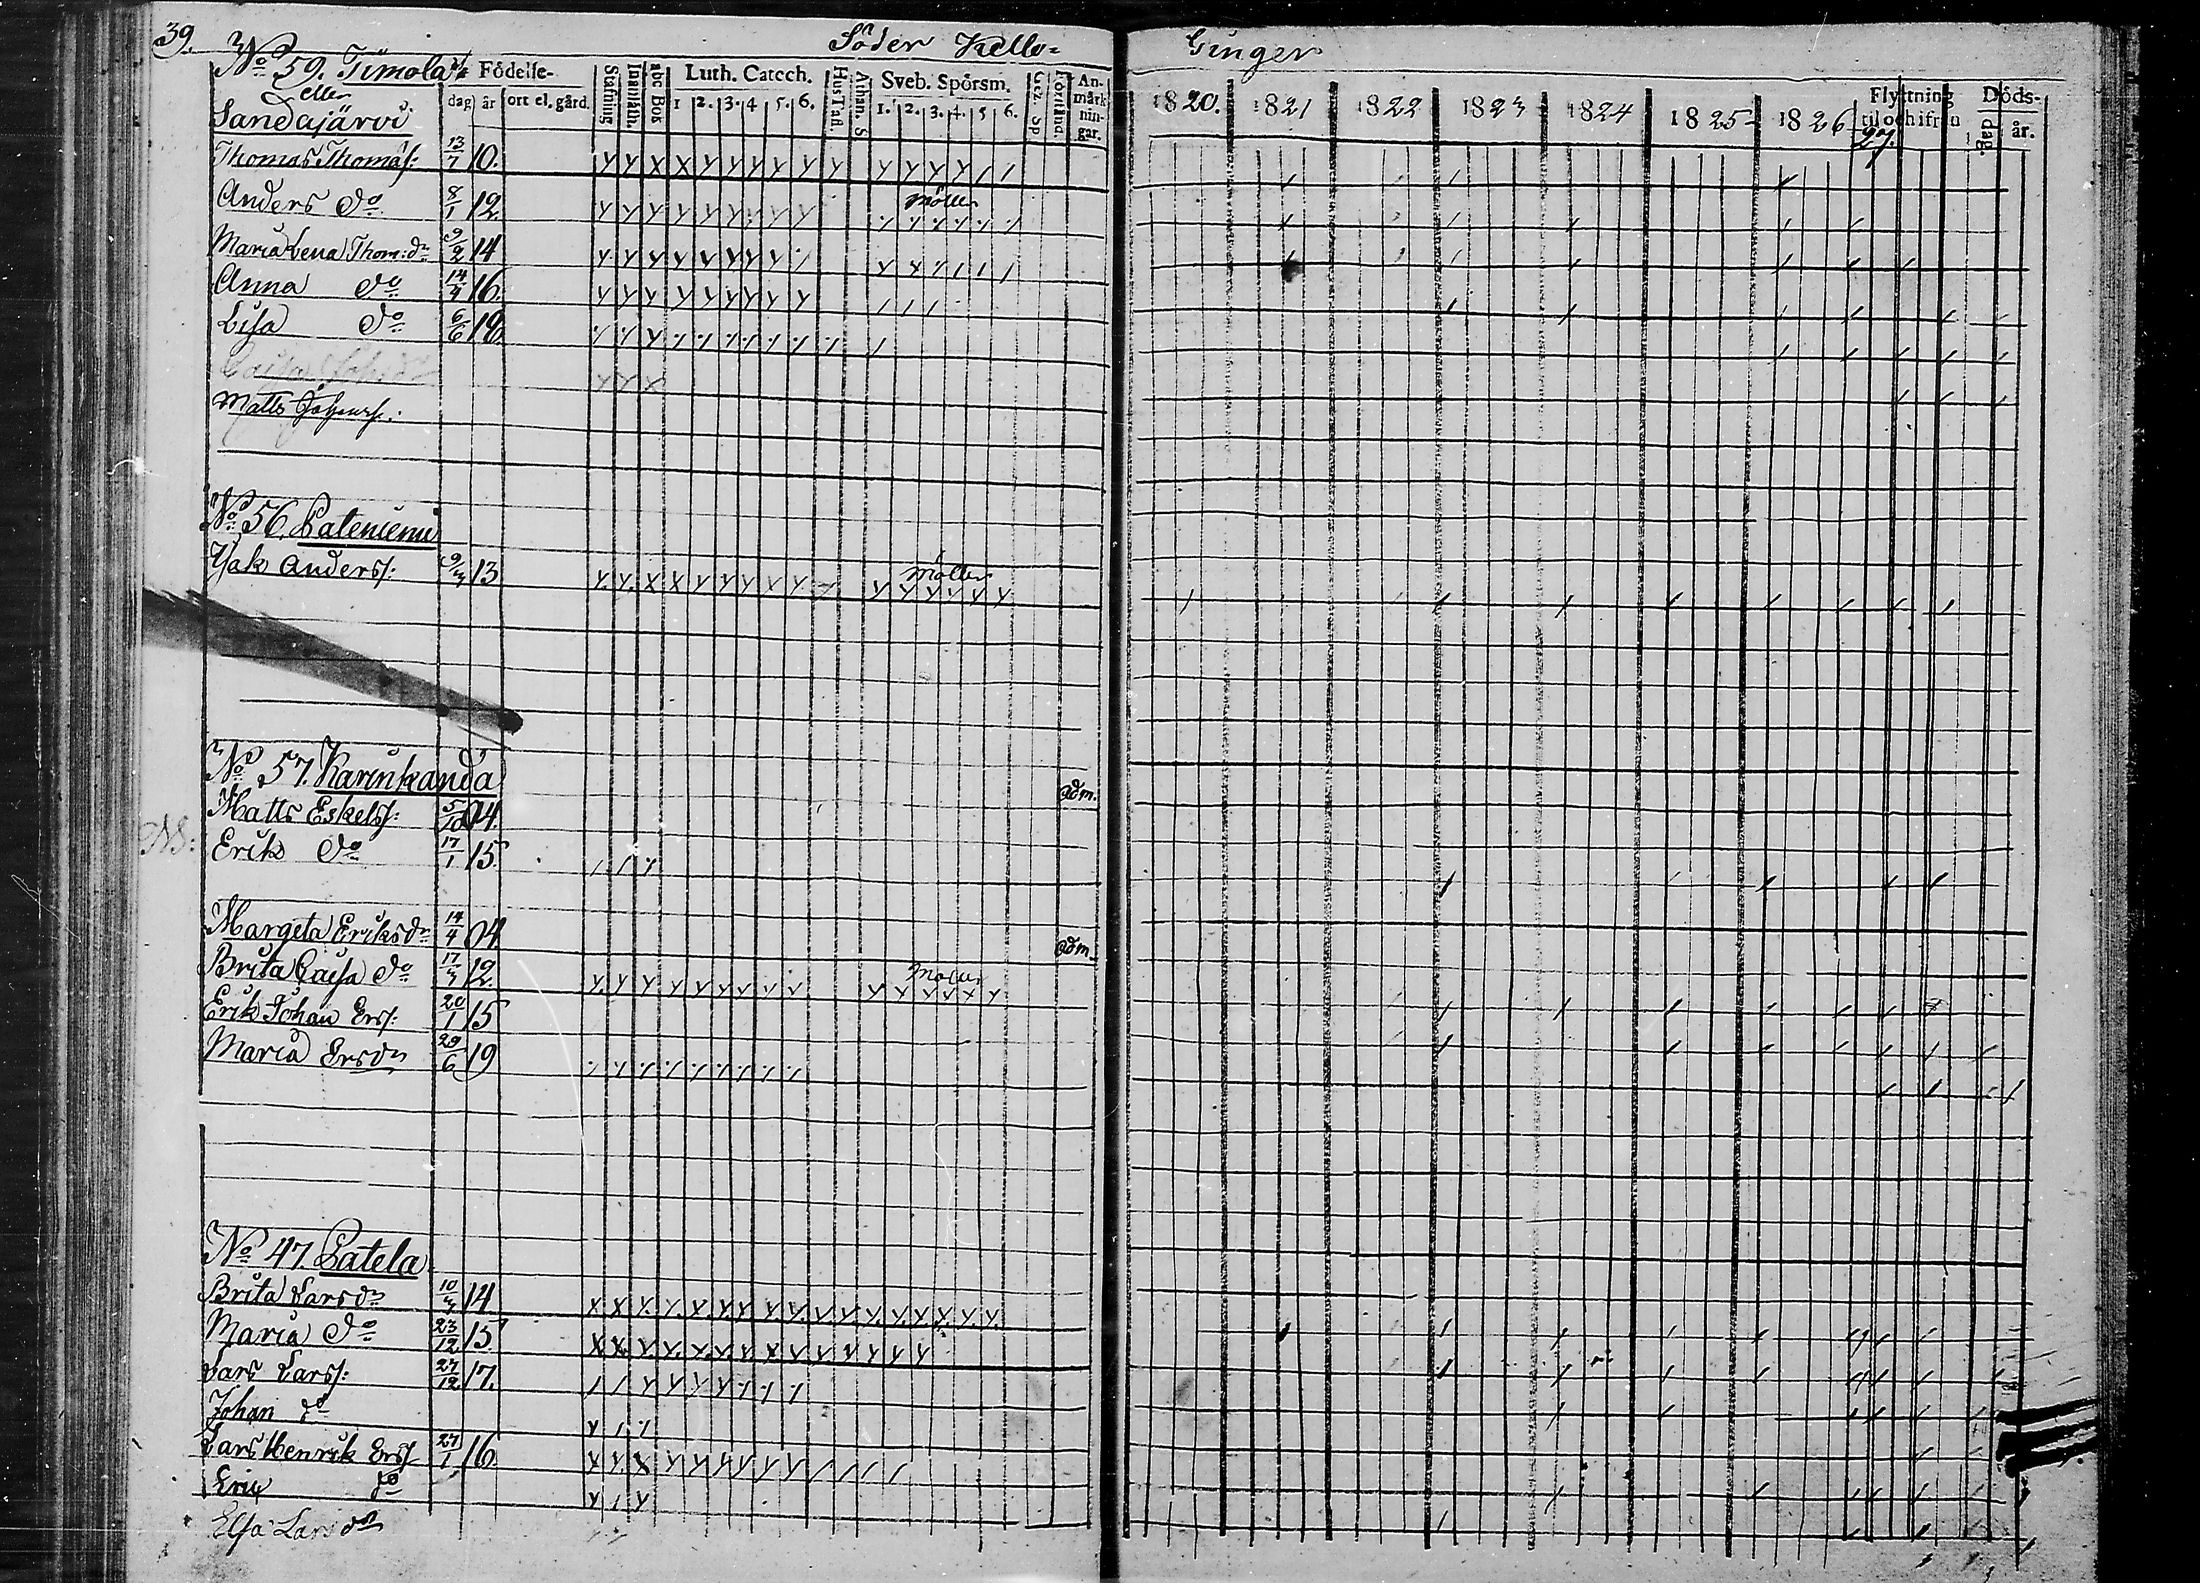 39.
Söder Kello=
Ginger
No 59. Timola
eller
Sandajärvi
Födelse-
dag år ort el. gård.
Stafning
Innanläsn.
abc Bok
Luth. Catech.
1 2. 3. 4 5. 6.
Hus Tafl.
Athan. S.
Sveb. Spörsm.
1. 2. 3. 4. 5 6.
An-
märk
nin-
gar.
1820. 1821 1822 1823 1824 1825 1826 27.
Flyttning
til och ifrån
Döds-
dag. år.
Thomas Thomass: 13/7 10.
Anders do 8/1 12 Möller
Maria Lena Thom:dr 9/2 14
Anna do 14/4 16.
Lisa do 6/6 18
Matts Johanss:
No 56. Lateniemi
Isak Anderss: 9/3 13 Möller
No 57. Karinkanda
Matts Eskelss: 5/10 04. adm.
Erik do 17/1 15.
Margeta Eriksdr 14/4 04 adm.
Brita Caisa do 17/3 12. Möller
Erik Johan Ers: 20/1 15
Maria Ersdr 29/6 19
No 47. Latela
Brita Larsdr 10/3 14
Maria do 23/12 15
Lars Larss: 27/12 17.
Johan do
Lars Henrik Erss 27/1 16
Eric do
Elsa Larsdr